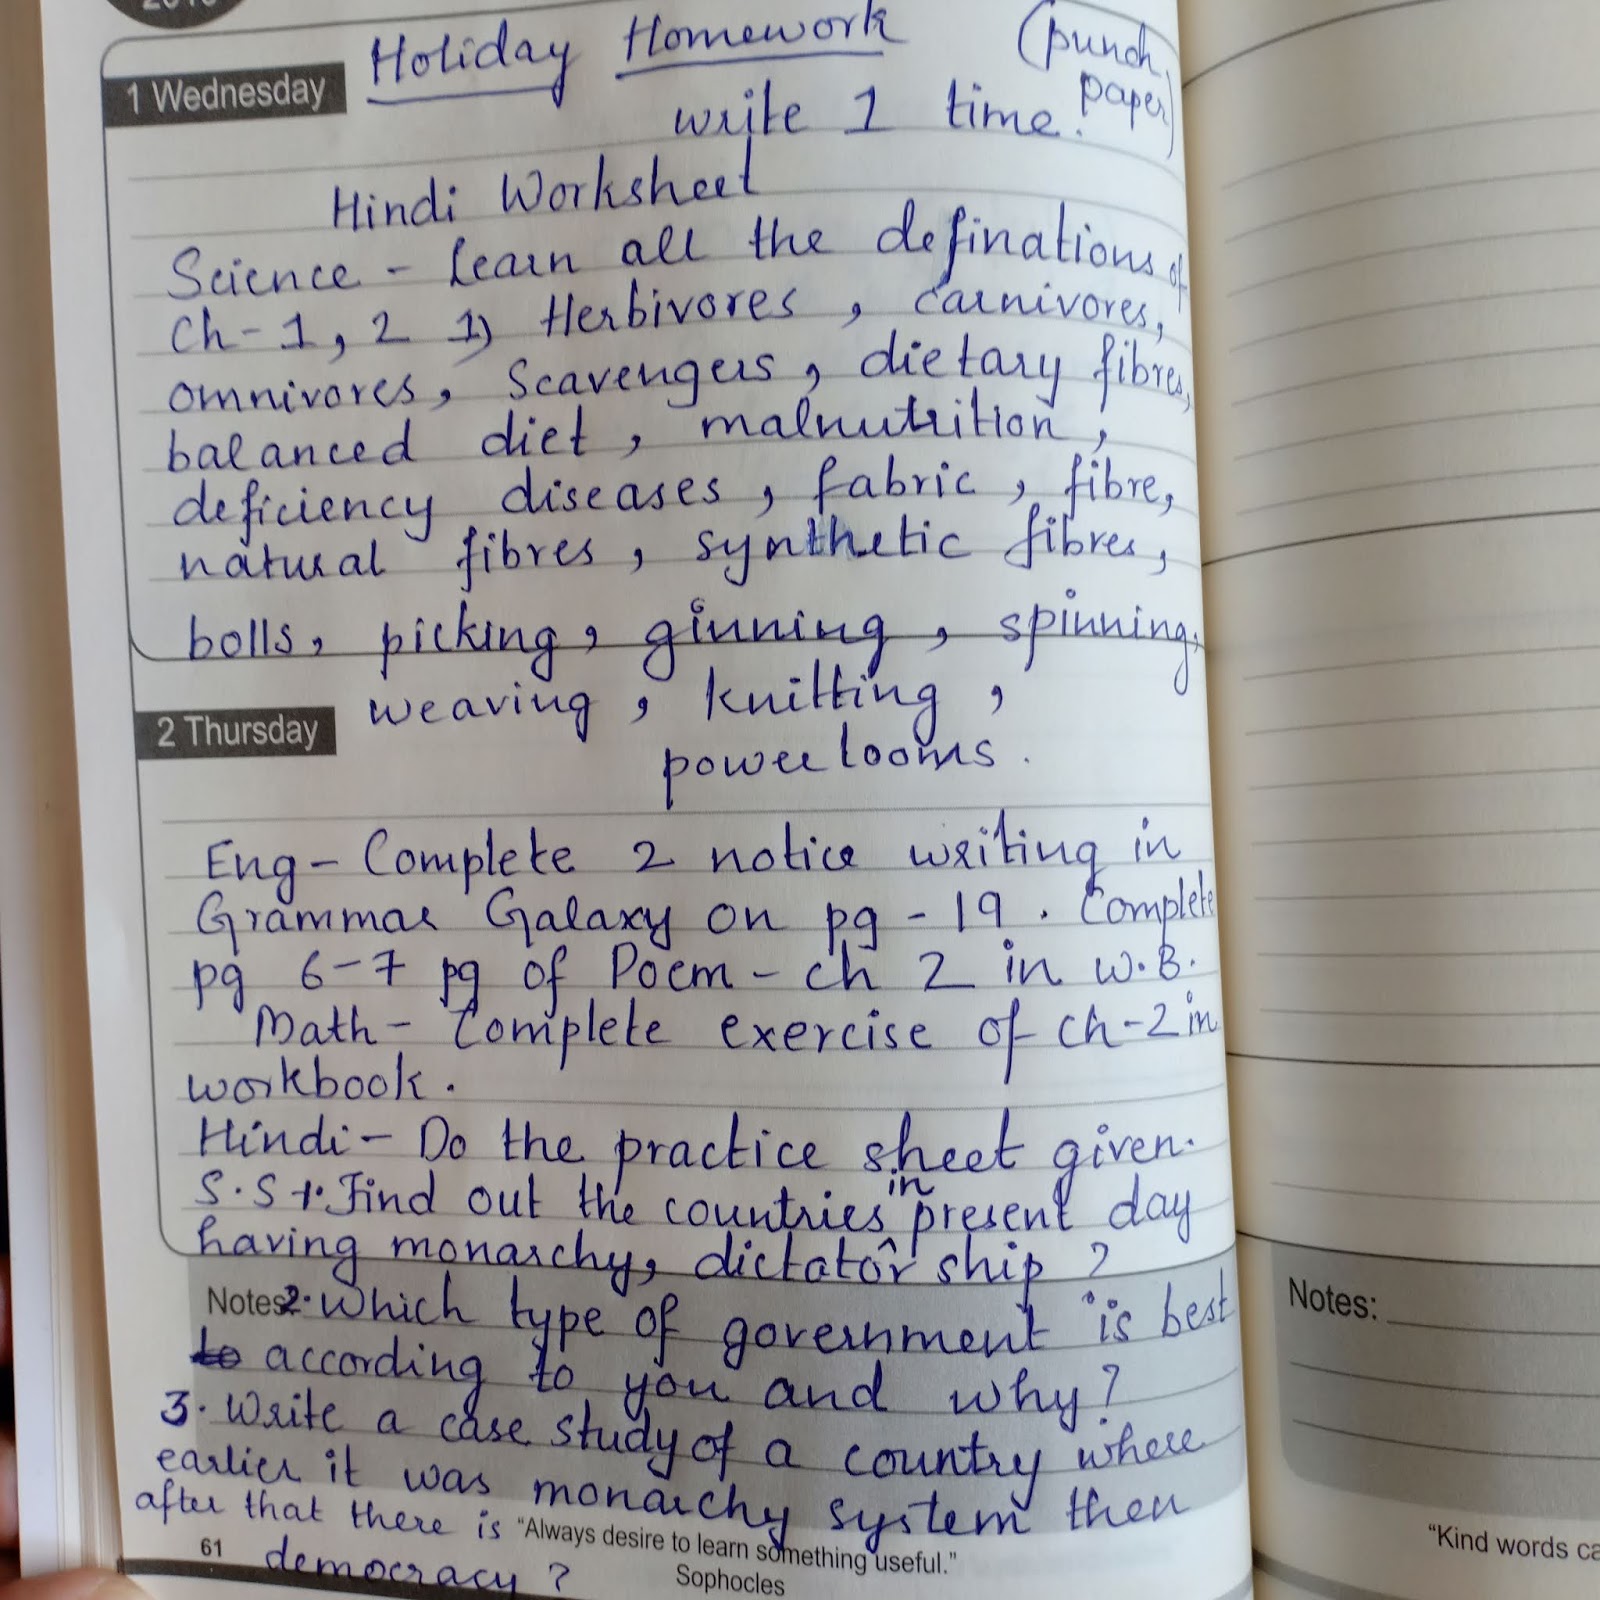 Holiday Homework (punch
1 Wednesday
write 1 time. paper)
Hindi Worksheet
Science - Learn all the definations of
Ch-1, 2 1) Herbivores, carnivores,
omnivores, Scavengers, dietary fibres,
balanced diet, malnutrition,
deficiency diseases, fabric, fibre,
natural fibres, synthetic fibres,
bolls, picking, ginning, spinning,
weaving, knitting,
2 Thursday
powerlooms.
Eng - Complete 2 notice writing in
Grammar Galaxy on pg - 19. Complete
pg 6-7 pg of Poem - ch 2 in W.B.
Math - Complete exercise of ch-2 in
workbook.
Hindi - Do the practice sheet given.
S.St. Find out the countries in present day
having monarchy, dictator ship ?
Notes: 2. Which type of government is best
to according to you and why?
3. Write a case study of a country where
earlier it was monarchy system then
after that there is
democracy ?
"Always desire to learn something useful."
Sophocles
61
Notes:
"Kind words ca